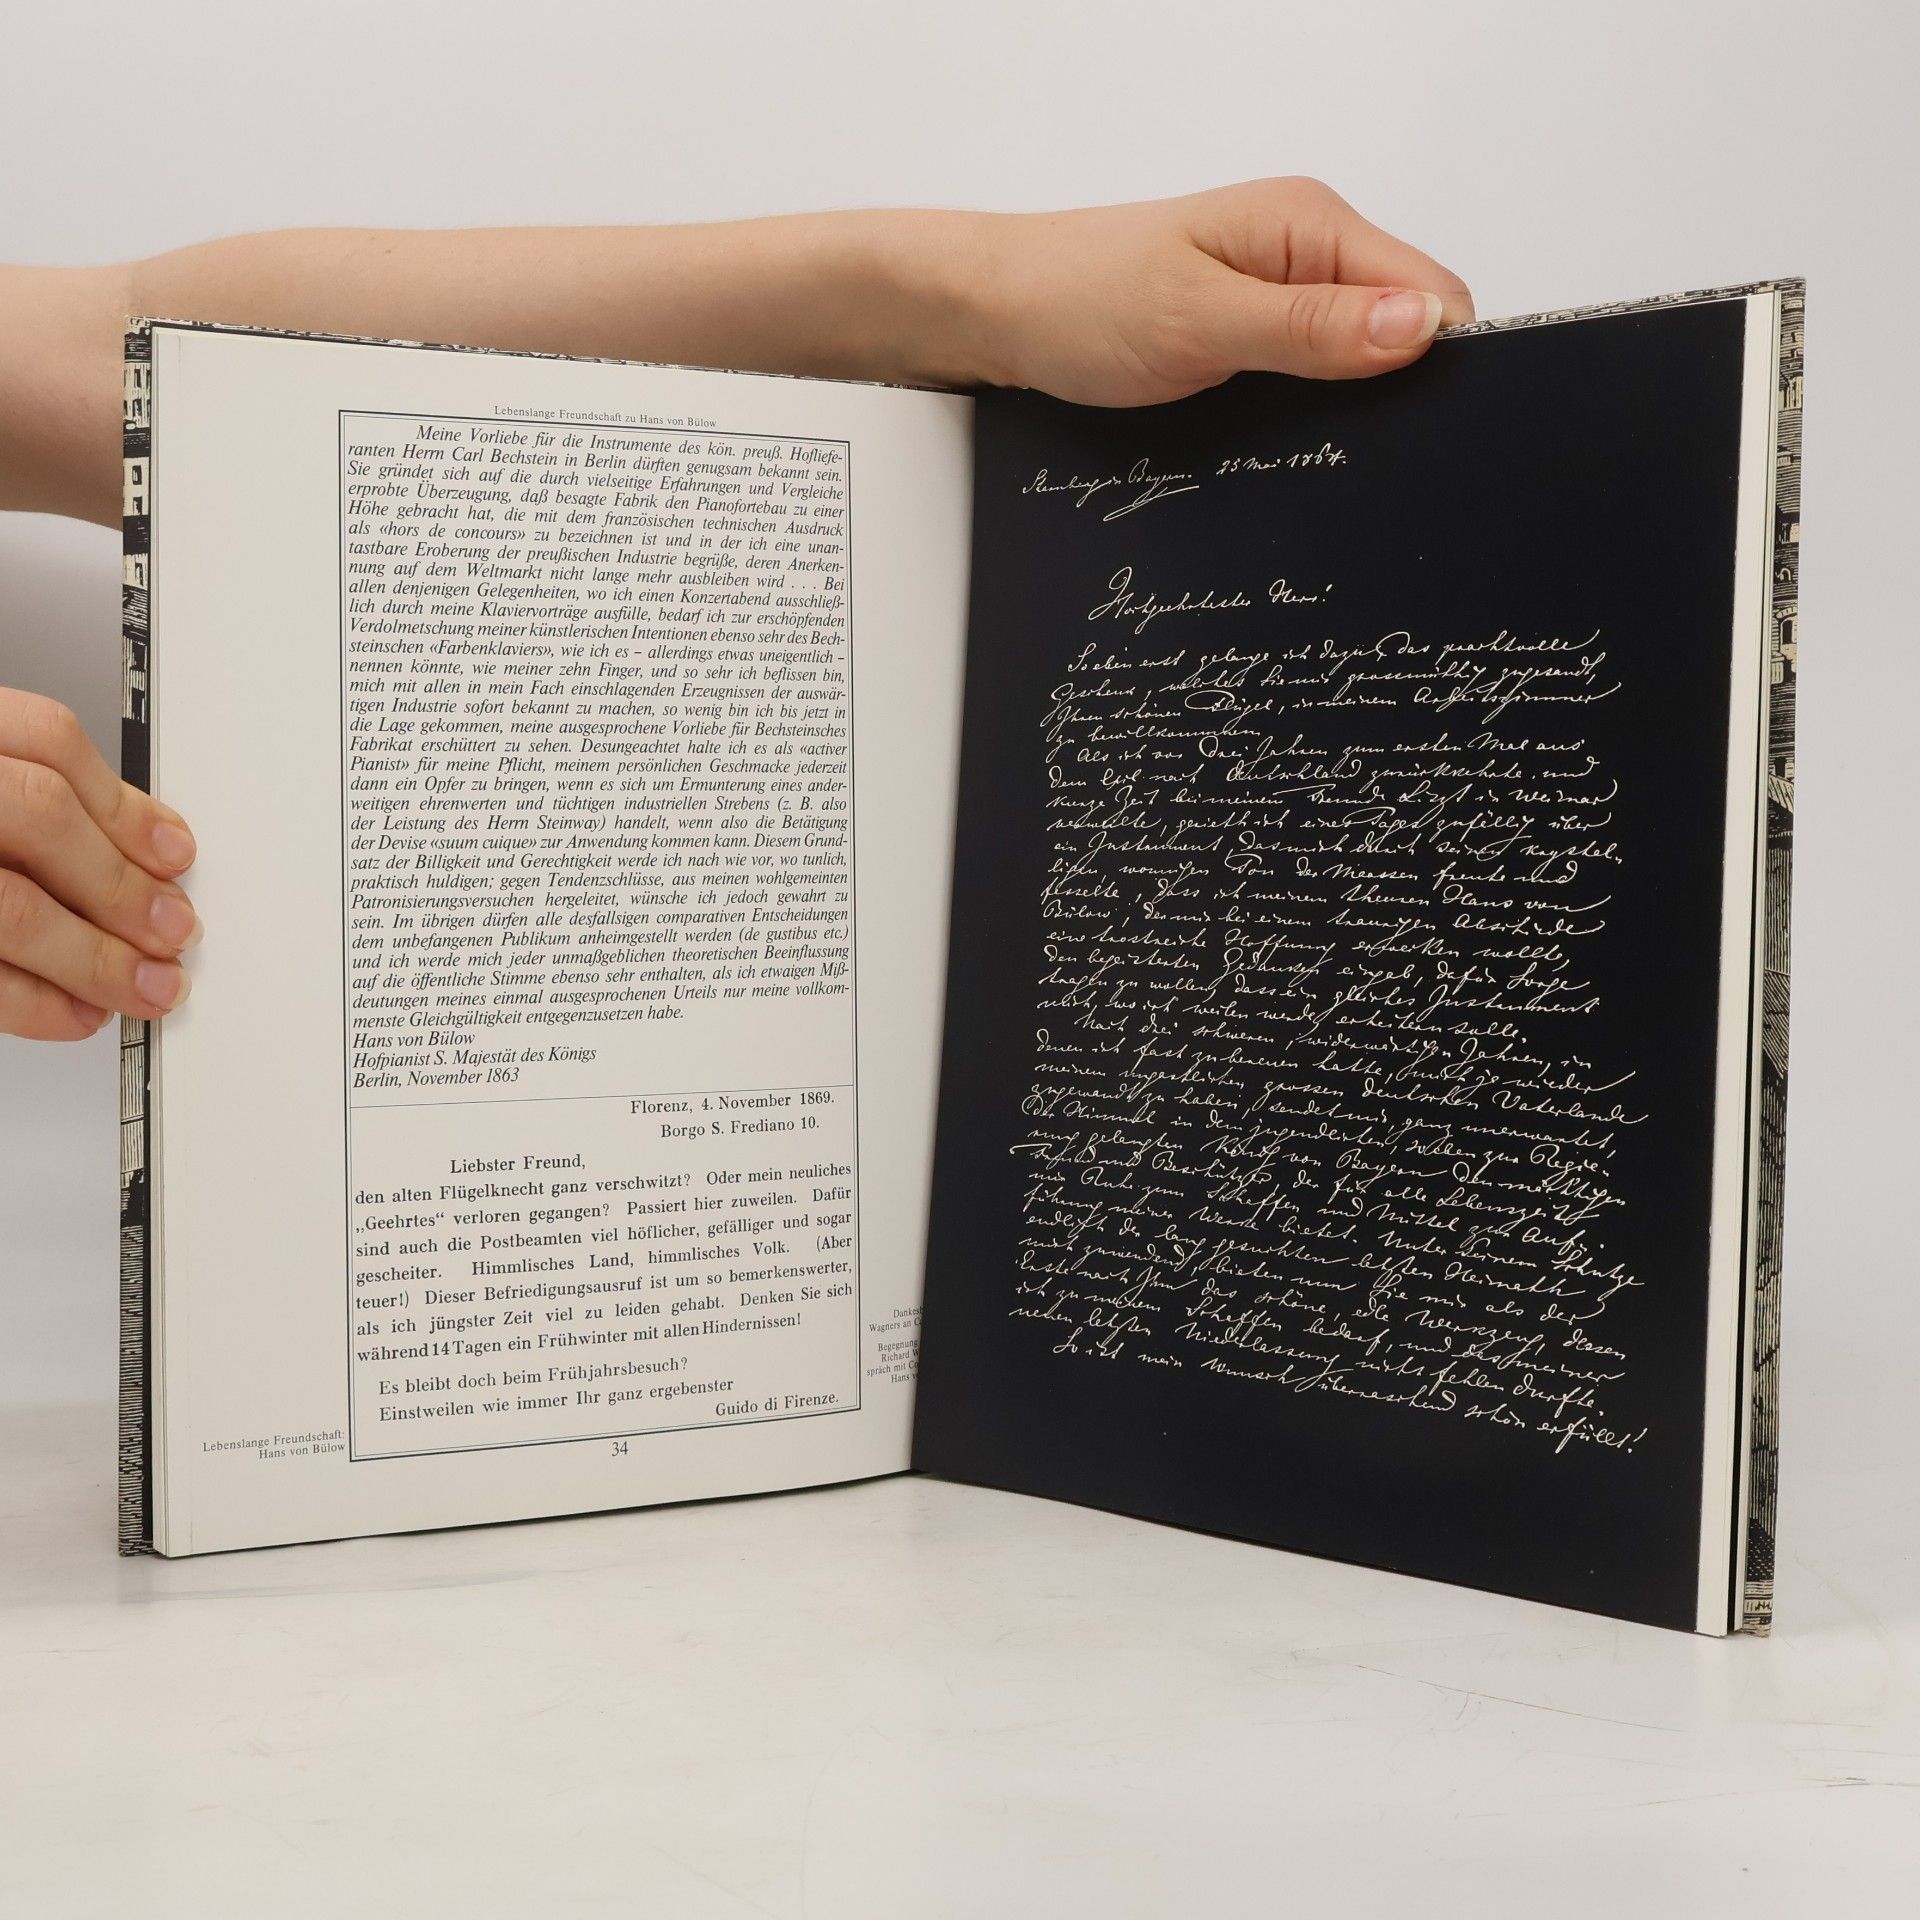 Lebenslange Freundschaft zu Hans von Bülow
Meine Vorliebe für die Instrumente des kön. preuß. Hofliefe-
ranten Herrn Carl Bechstein in Berlin dürften genugsam bekannt sein.
Sie gründet sich auf die durch vielseitige Erfahrungen und Vergleiche
erprobte Überzeugung, daß besagte Fabrik den Pianofortebau zu einer
Höhe gebracht hat, die mit dem französischen technischen Ausdruck
als «hors de concours» zu bezeichnen ist und in der ich eine unan-
tastbare Eroberung der preußischen Industrie begrüße, deren Anerken-
nung auf dem Weltmarkt nicht lange mehr ausbleiben wird . . . Bei
allen denjenigen Gelegenheiten, wo ich einen Konzertabend ausschließ-
lich durch meine Klaviervorträge ausfülle, bedarf ich zur erschöpfenden
Verdolmetschung meiner künstlerischen Intentionen ebenso sehr des Bech-
steinschen «Farbenklaviers», wie ich es – allerdings etwas uneigentlich –
nennen könnte, wie meiner zehn Finger, und so sehr ich beflissen bin,
mich mit allen in mein Fach einschlagenden Erzeugnissen der auswär-
tigen Industrie sofort bekannt zu machen, so wenig bin ich bis jetzt in
die Lage gekommen, meine ausgesprochene Vorliebe für Bechsteinsches
Fabrikat erschüttert zu sehen. Desungeachtet halte ich es als «activer
Pianist» für meine Pflicht, meinem persönlichen Geschmacke jederzeit
dann ein Opfer zu bringen, wenn es sich um Ermunterung eines ander-
weitigen ehrenwerten und tüchtigen industriellen Strebens (z. B. also
der Leistung des Herrn Steinway) handelt, wenn also die Betätigung
der Devise «suum cuique» zur Anwendung kommen kann. Diesem Grund-
satz der Billigkeit und Gerechtigkeit werde ich nach wie vor, wo tunlich,
praktisch huldigen; gegen Tendenzschlüsse, aus meinen wohlgemeinten
Patronisierungsversuchen hergeleitet, wünsche ich jedoch gewahrt zu
sein. Im übrigen dürfen alle desfallsigen comparativen Entscheidungen
dem unbefangenen Publikum anheimgestellt werden (de gustibus etc.)
und ich werde mich jeder unmaßgeblichen theoretischen Beeinflussung
auf die öffentliche Stimme ebenso sehr enthalten, als ich etwaigen Miß-
deutungen meines einmal ausgesprochenen Urteils nur meine vollkom-
menste Gleichgültigkeit entgegenzusetzen habe.
Hans von Bülow
Hofpianist S. Majestät des Königs
Berlin, November 1863
Florenz, 4. November 1869.
Borgo S. Frediano 10.
Liebster Freund,
den alten Flügelknecht ganz verschwitzt? Oder mein neuliches
„Geehrtes“ verloren gegangen? Passiert hier zuweilen. Dafür
sind auch die Postbeamten viel höflicher, gefälliger und sogar
gescheiter. Himmlisches Land, himmlisches Volk. (Aber
teuer!) Dieser Befriedigungsausruf ist um so bemerkenswerter,
als ich jüngster Zeit viel zu leiden gehabt. Denken Sie sich
während 14 Tagen ein Frühwinter mit allen Hindernissen!
Es bleibt doch beim Frühjahrsbesuch?
Einstweilen wie immer Ihr ganz ergebenster
Guido di Firenze.
Lebenslange Freundschaft:
Hans von Bülow
34
Wagners an
Begegnung
Richard W
spräch mit
Hans
Starnberg in Bayern. 25 Mai 1864.
Hochgeehrtester Herr!
Soeben erst gelange ich dazu, das prachtvolle
Geschenk, welches Sie mir grossmüthig zugesandt,
Ihren schönen Flügel, in meinem Arbeitszimmer
zu bewillkommnen.
Als ich vor drei Jahren zum ersten Mal aus
dem Exil nach Deutschland zurückkehrte, und
kurze Zeit bei meinem Freunde Liszt in Weimar
verweilte, gerieth ich eines Tages zufällig über
ein Instrument, das mich durch seinen krystal-
ligen, wonnigen Ton der Maassen freute und
fesselte, dass ich meinem theuren Hans von
Bülow, der mir bei einem traurigen Abschiede
eine trostreiche Hoffnung erwecken wollte,
den begeisterten Gedanken eingab, dafür Sorge
tragen zu wollen, dass ein gleiches Instrument
mich, wo ich weilen werde, erheitern solle.
Nach drei schweren, widerwärtigen Jahren, in
denen ich fast zu bereuen hatte, mich je wieder
meinem ungastlichen, grossen deutschen Vaterlande
zugewandt zu haben, sendet mir, ganz unerwartet,
der Himmel in dem jugendlichen, soeben zur Regie-
rung gelangten König von Bayern den mächtigen
Freund und Beschützer, der für alle Lebenszeit
mir Ruhe zum Schaffen und Mittel zur Auf-
führung meiner Werke bietet. Unter seinem Schutze
endlich der lang gesuchten letzten Heimath
mich zuwendend, bieten nun Sie mir als der
Erste nach Ihm das schöne, edle Werkzeug, dessen
ich zu meinem Schaffen bedarf, und das meiner
neuen letzten Niederlassung nicht fehlen durfte.
So ist mein Wunsch überraschend schön erfüllt!